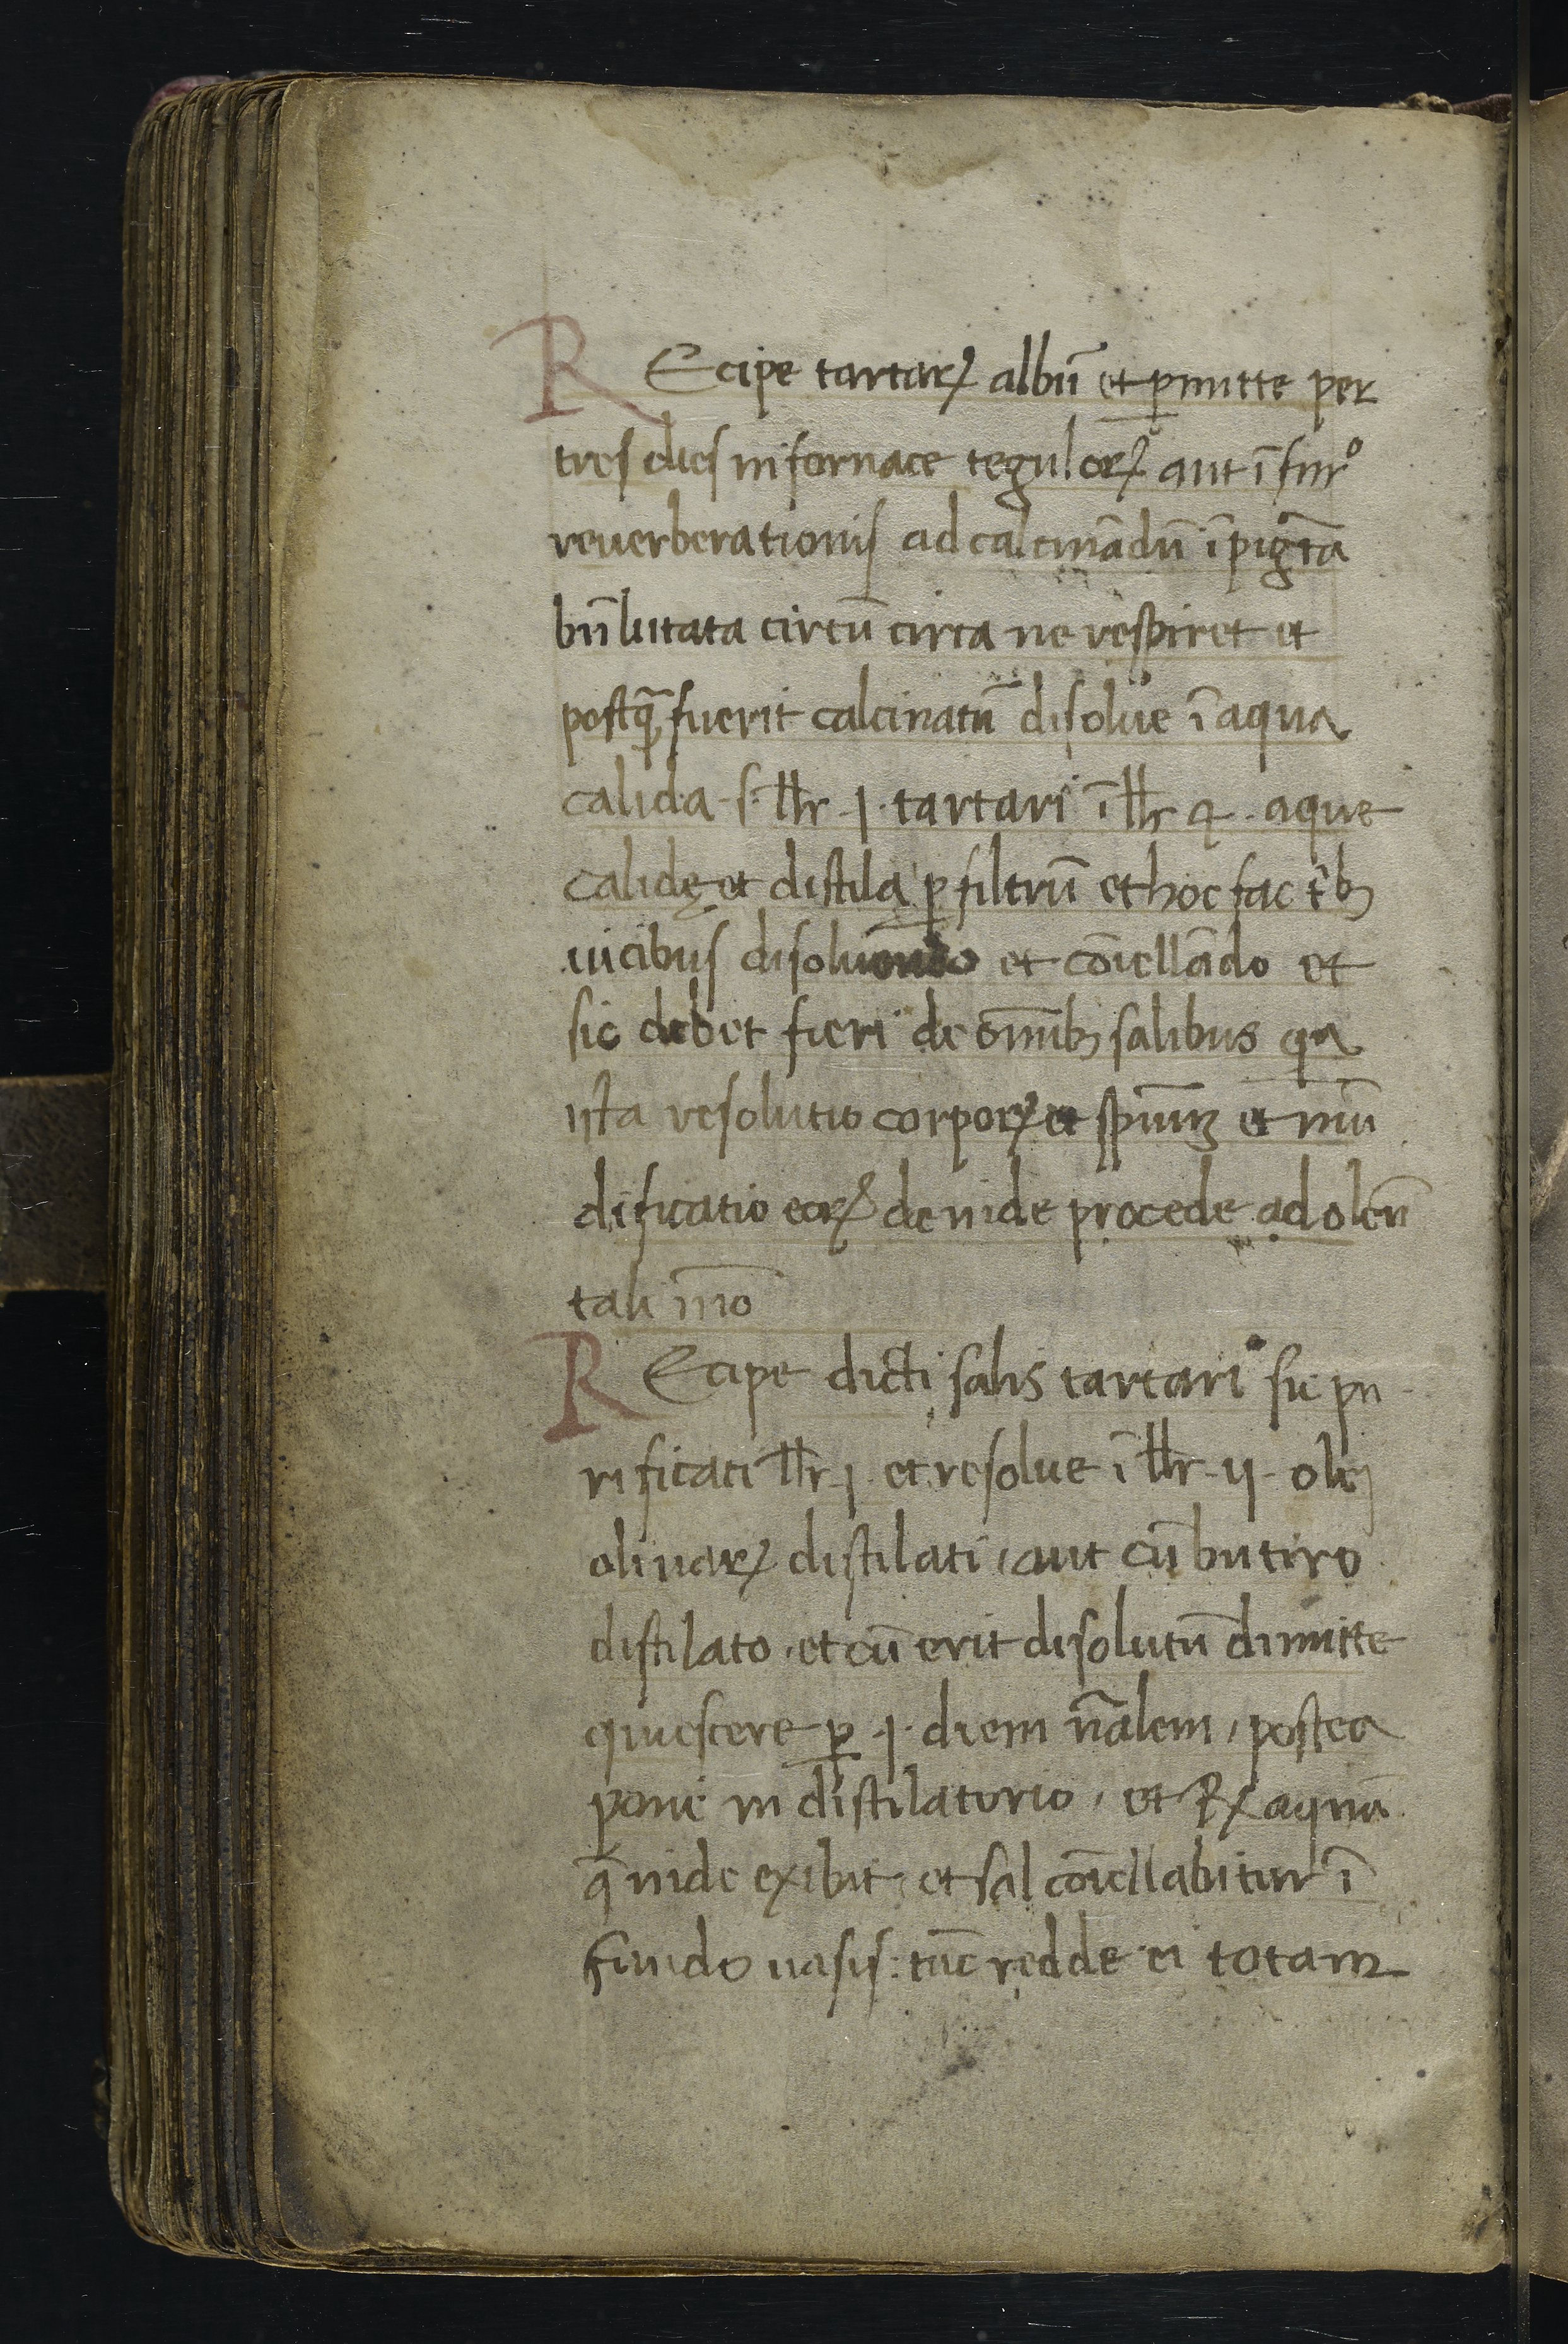 REcipe tartaꝝ albū et ꝑmitte per
tres dies in fornace teguloꝝ aut ī furº
reuerberationis ad calcinādū ī pigtā
bn̄ lutata circū circa ne respiret et
postꝗ̄ fuerit calcinatū disolue ī aqua
calida ·s· llr ·j· tartari ī llr 4 · aque
calidę et distila ꝑ filtrū et hoc fac t'bꝫ
uicibus disoluendo et cōiellādo et
sic debet fieri de om̄ibꝫ salibus qa
ista resolutio corpoꝝ et sp̄iuum et mū
dificatio eoꝝ de inide procede ad oleū
tali mō
REcipe dicti salis tartari sic pu
rificati llr ·j· et resolue ī llr ·ij· olej
oliuaꝝ distilati, aut cū butiro
distilato, et cū erit disolutū dimitte
quiescere ꝑ ·j· diem n̄alem, postea
pone in distilatorio, et ℞ aquā
q̄ inide exibit, et sal cōiellabitur ī
fundo uasis: tūc redde ei totam